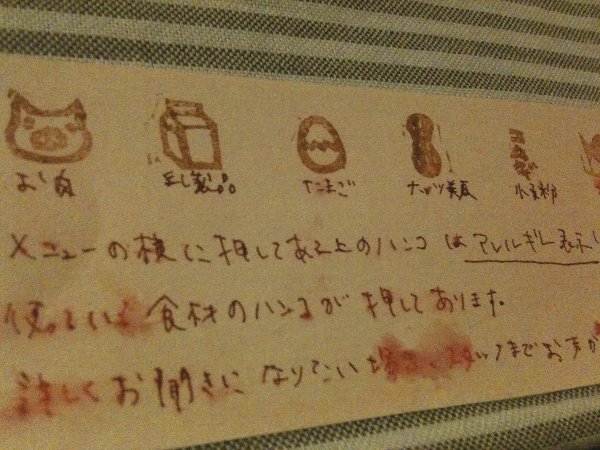 お肉 乳製品 たまご ナッツ類 小麦
メニューの横に押してある上のハンコはアレルギー表示
使っている食材のハンコが押してあります。
詳しくお聞きになりたい場合、スタッフまでお声が